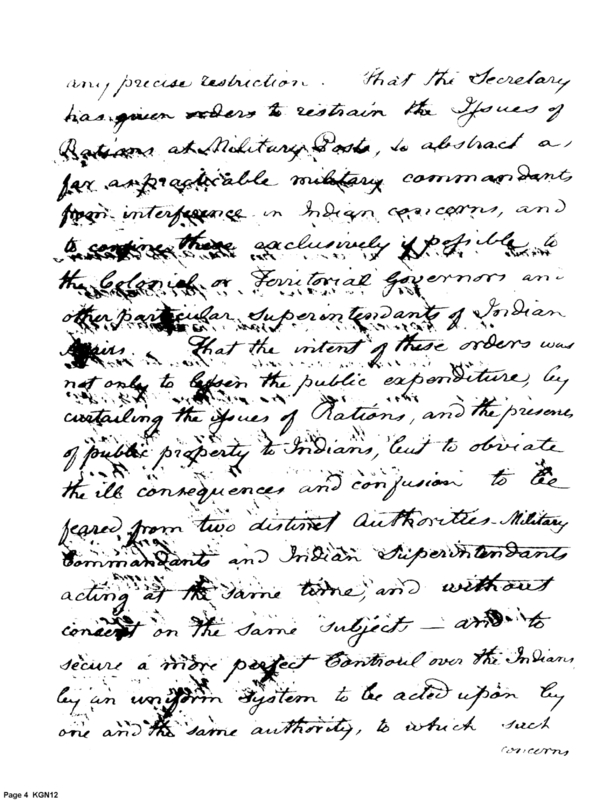 any precise restriction. That the Secretary
has given orders to restrain the Issues of
Rations at Military Posts, to abstract as
far as practicable military commandants
from interference in Indian concerns, and
to confine these exclusively if possible to
the Colonial or Territorial Governors and
other particular Superintendants of Indian
Affairs. That the intent of these orders was
not only to lessen the public expenditure, by
curtailing the issues of Rations, and the presents
of public property to Indians, but to obviate
the ill consequences and confusion to be
feared from two distinct Authorities - Military
Commandants and Indian Superintendants
acting at the same time, and without
concert on the same subject — and to
secure a more perfect Controul over the Indians
by an uniform system to be acted upon by
one and the same authority, to which such
concerns
Page 4 KGN12